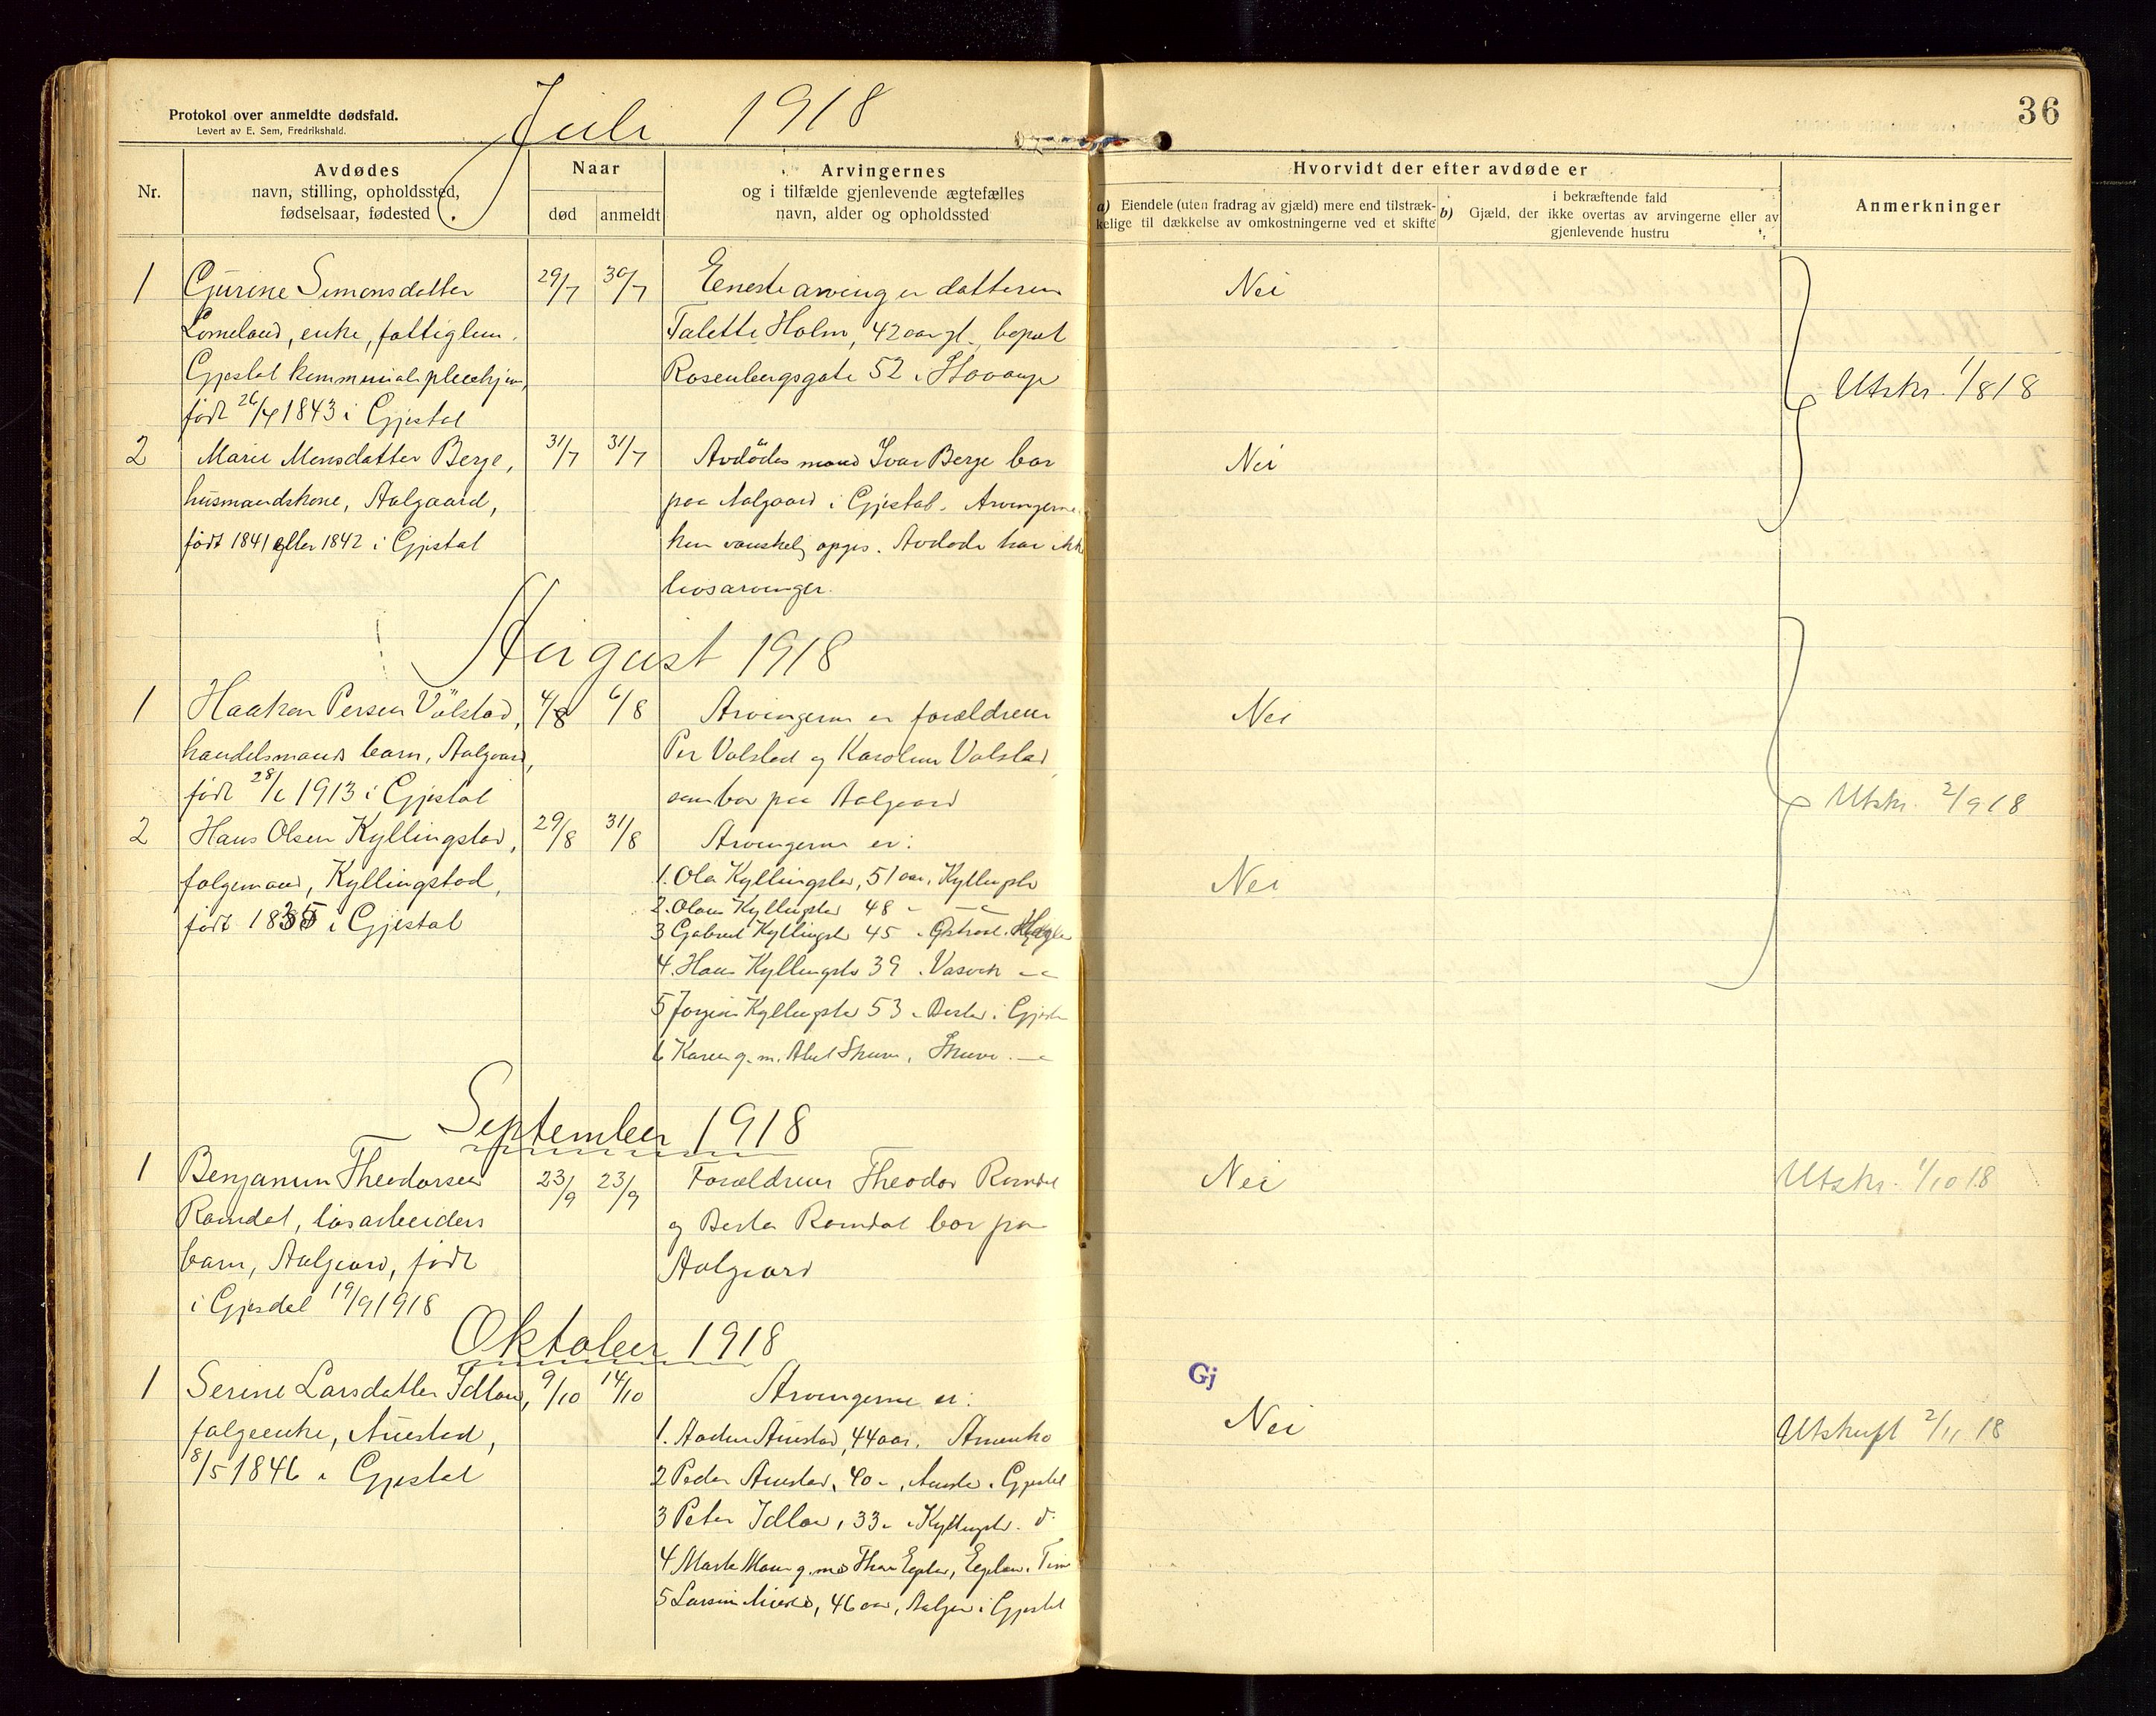 Protokol over anmeldte dødsfald.
Levert av E. Sem, Fredrikshald.
Juli 1918
36
Nr.
Avdødes
navn, stilling, opholdssted,
fødselsaar, fødested
Naar
død
anmeldt
Arvingernes
og i tilfælde gjenlevende ægtefælles
navn, alder og opholdssted
Hvorvidt der efter avdøde er
a) Eiendele (uten fradrag av gjæld) mere end tilstræk-
kelige til dækkelse av omkostningerne ved et skifte
i bekræftende fald
b) Gjæld, der ikke overtas av arvingerne eller av
gjenlevende hustru
Anmerkninger
1
Gurine Simonsdatter
Lomeland, enke, fattiglem
Gjestal kommunale pleiehjem,
født 26/4 1843 i Gjestal
29/7
30/7
Eneste arving er datteren
Talette Holm, 42 aar gl., bopæl
Rosenbergsgate 52 i Stavanger
Nei
Utskr. 1/8 18
2
Marie Monsdatter Berge,
husmandskone, Aalgaard,
født 1841 eller 1842 i Gjestal
31/7
31/7
Avdødes mand Ivar Berge bor
paa Aalgaard i Gjestal. Arvingerne
kan vanskelig opgis. Avdøde har ikke
livsarvinger.
Nei
August 1918
1
Haakon Persen Vølstad,
handelsmands barn, Aalgaard,
født 28/1 1913 i Gjestal
4/8
6/8
Arvingerne er forældrene
Per Vølstad og Karoline Vølstad
som bor paa Aalgaard
Nei
Utskr. 2/9 18
2
Hans Olsen Kyllingstad,
følgemand, Kyllingstad,
født 1835 i Gjestal
29/8
31/8
Arvingerne er:
1. Ola Kyllingstad, 51 aar, Kyllingstad
2. Olaus Kyllingstad 48 " — " —
3 Gabriel Kyllingstad 45
4. Hans Kyllingstad 39
5 Kyllingstad 53 i Gjestal
6 Karen g. m. Abel Skurve, Skurve
Nei
September 1918
1
Benjamin Theodorsen
Ramdal, løsarbeiders
barn, Aalgaard, født
i Gjesdal 19/9 1918
23/9
23/9
Forældrene Theodor Ramdal
og Berta Ramdal bor paa
Aalgaard
Nei
Utskr. 1/10 18
Oktober 1918
1
Serine Larsdatter Idland,
følgeenke, Auestad,
8/5 1846 i Gjestal
9/10
14/10
Arvingerne er:
1. Auestad, 44 aar, Amerika
2 Peder Auestad, 40 " , Auestad i Gjestal
3 Peter Idland, 33 " Kyllingstad do
4 g. m.
5 46 aar, Aalgaard i Gjestal
Gj
Nei
Utskrift 2/11 18